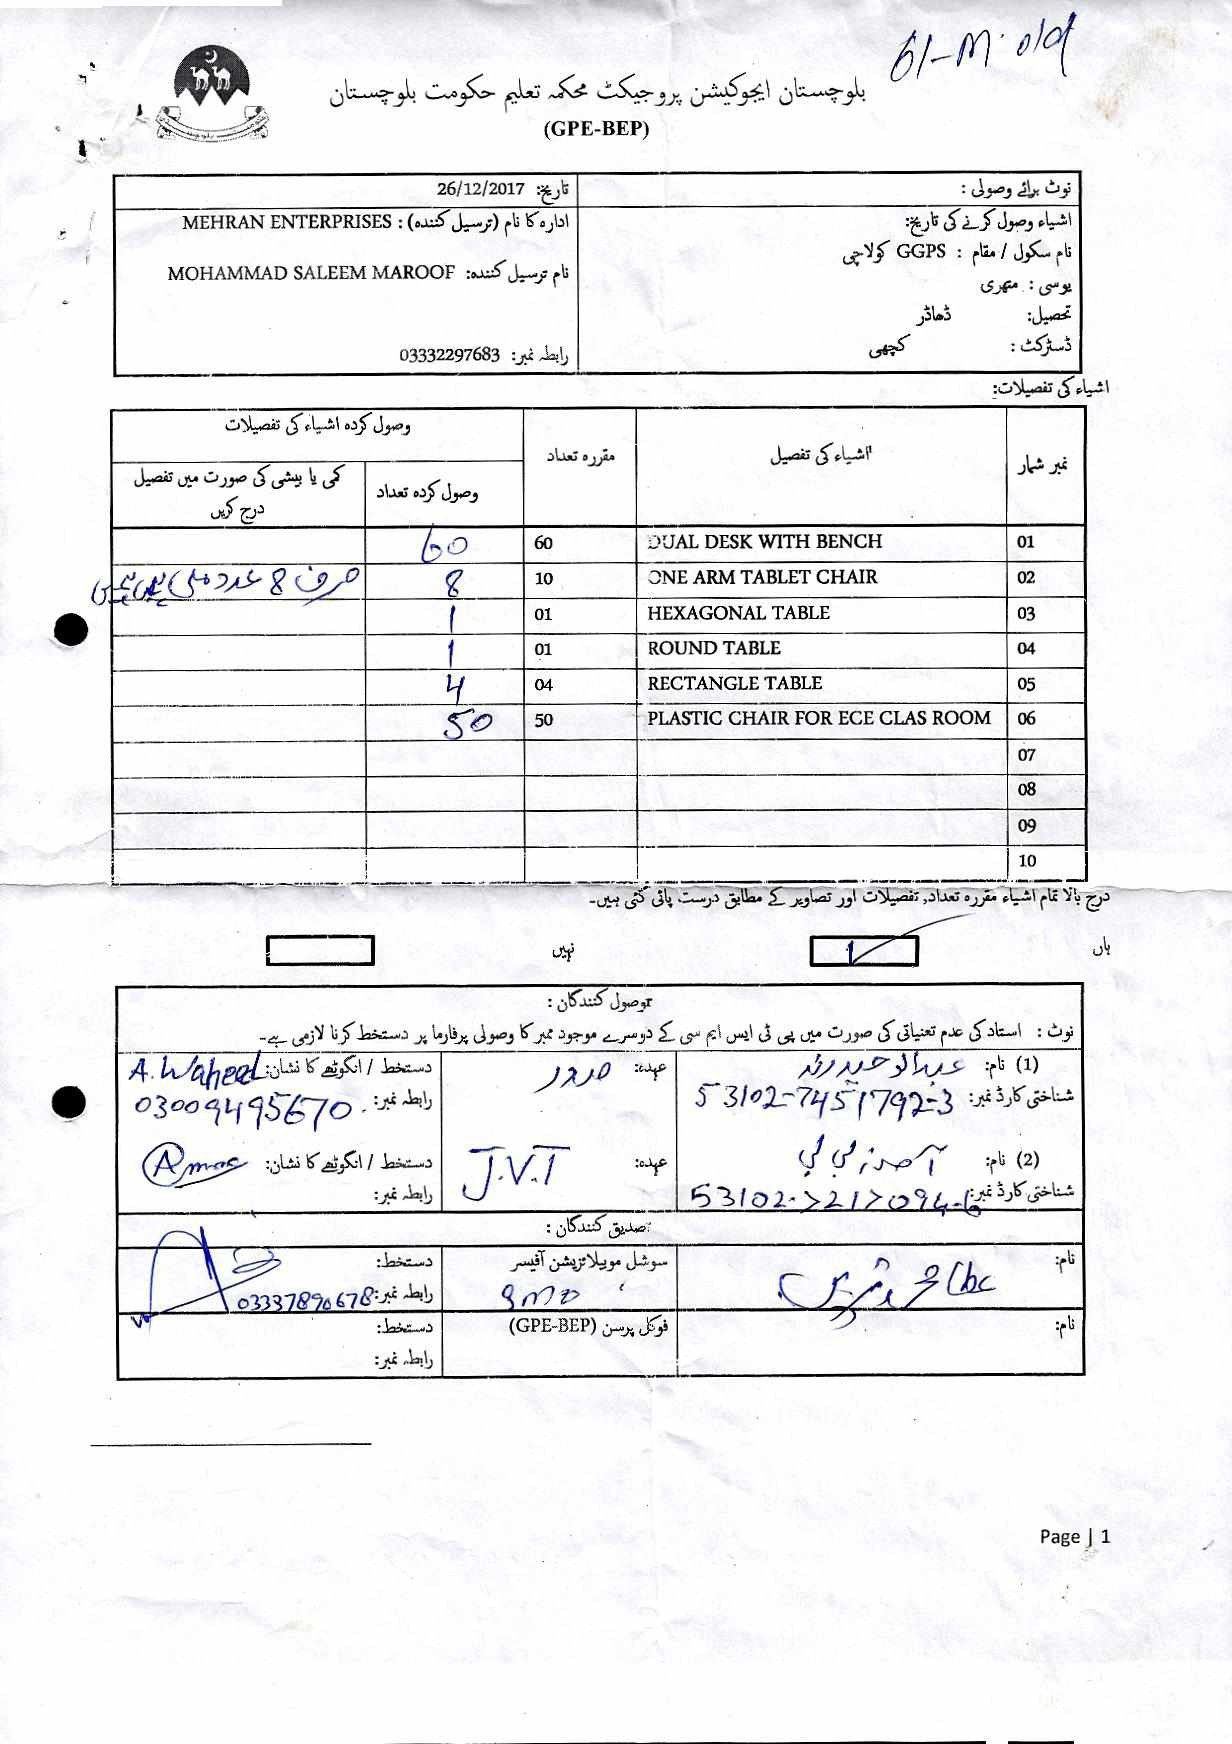 61-M. old
بلوچستان ایجوکیشن پروجیکٹ محکمہ تعلیم حکومت بلوچستان
(GPE-BEP)
نوٹ برائے وصولی :
تاریخ: 26/12/2017
اشیاء وصول کرنے کی تاریخ:
ادارہ کا نام (ترسیل کنندہ) : MEHRAN ENTERPRISES
نام سکول / مقام : GGPS کولاچی
نام ترسیل کنندہ: MOHAMMAD SALEEM MAROOF
یوسی : متھری
تحصیل: ڈھاڈر
ڈسٹرکٹ : کچھی
رابطہ نمبر: 03332297683
اشیاء کی تفصیلات:
نمبر شمار اشیاء کی تفصیل مقررہ تعداد وصول کردہ اشیاء کی تفصیلات
وصول کردہ تعداد کمی یا بیشی کی صورت میں تفصیل درج کریں
01 DUAL DESK WITH BENCH 60 60
02 ONE ARM TABLET CHAIR 10 8 صرف 8 عدد ملی
03 HEXAGONAL TABLE 01 1
04 ROUND TABLE 01 1
05 RECTANGLE TABLE 04 4
06 PLASTIC CHAIR FOR ECE CLAS ROOM 50 50
07
08
09
10
درج بالا تمام اشیاء مقررہ تعداد, تفصیلات اور تصاویر کے مطابق درست پائی گئی ہیں۔
ہاں نہیں
وصول کنندگان :
نوٹ : استاد کی عدم تعنیاتی کی صورت میں پی ٹی ایس ایم سی کے دوسرے موجود ممبر کا وصولی پرفارما پر دستخط کرنا لازمی ہے۔
(1) نام: عبدالوحید عہدہ: صدر دستخط / انگوٹھے کا نشان: A.Waheed
شناختی کارڈ نمبر: 53102-7451792-3 رابطہ نمبر: 03009495670
(2) نام: آمنہ بی بی عہدہ: J.V.T دستخط / انگوٹھے کا نشان:
شناختی کارڈ نمبر: 53102-7217094-6 رابطہ نمبر:
تصدیق کنندگان :
نام: سوشل موبیلائزیشن آفیسر دستخط:
SMO رابطہ نمبر: 03337890678
نام: فوکل پرسن (GPE-BEP) دستخط:
رابطہ نمبر:
Page | 1